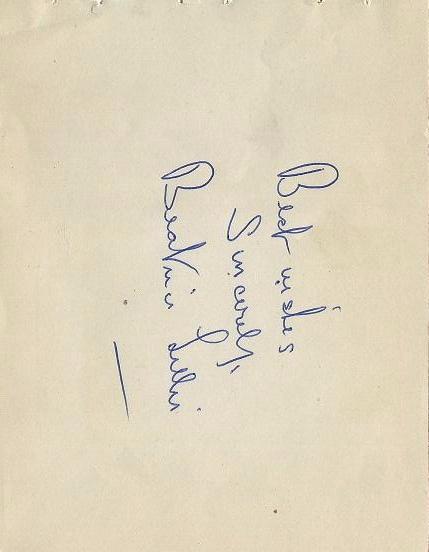 Best wishes
Sincerely
Beatrice Lillie